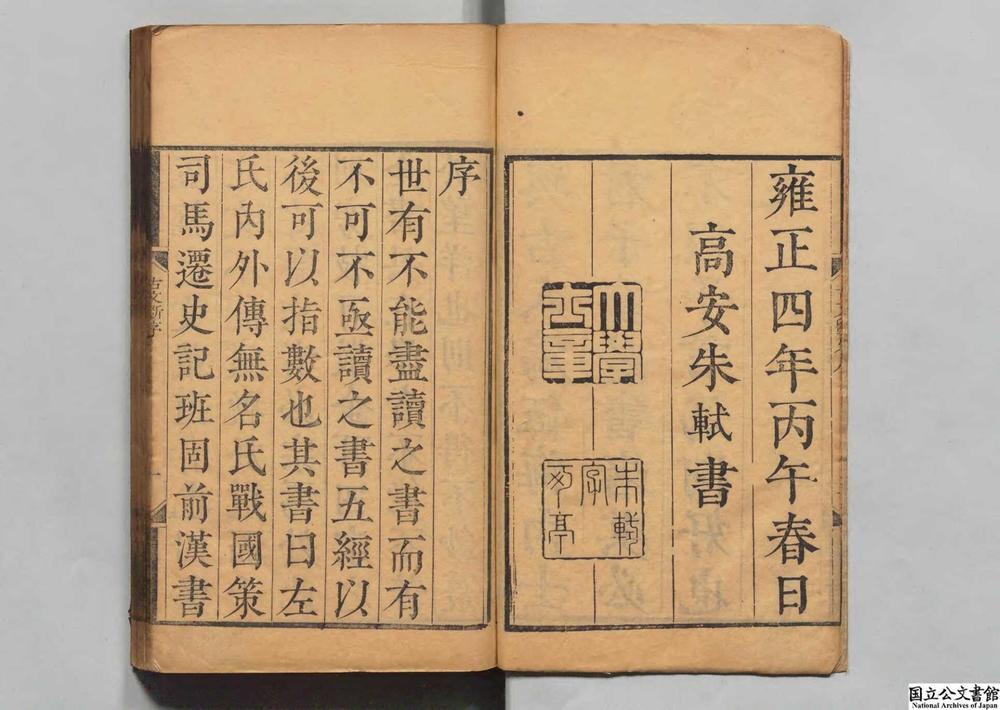 雍正四年丙午春日
高安朱軾書
大學士章
朱軾字可亭
序
世有不能盡讀之書而有
不可不亟讀之書五經以
後可以指數也其書曰左
氏內外傳無名氏戰國策
司馬遷史記班固前漢書
古文斫序
国立公文書館
National Archives of Japan